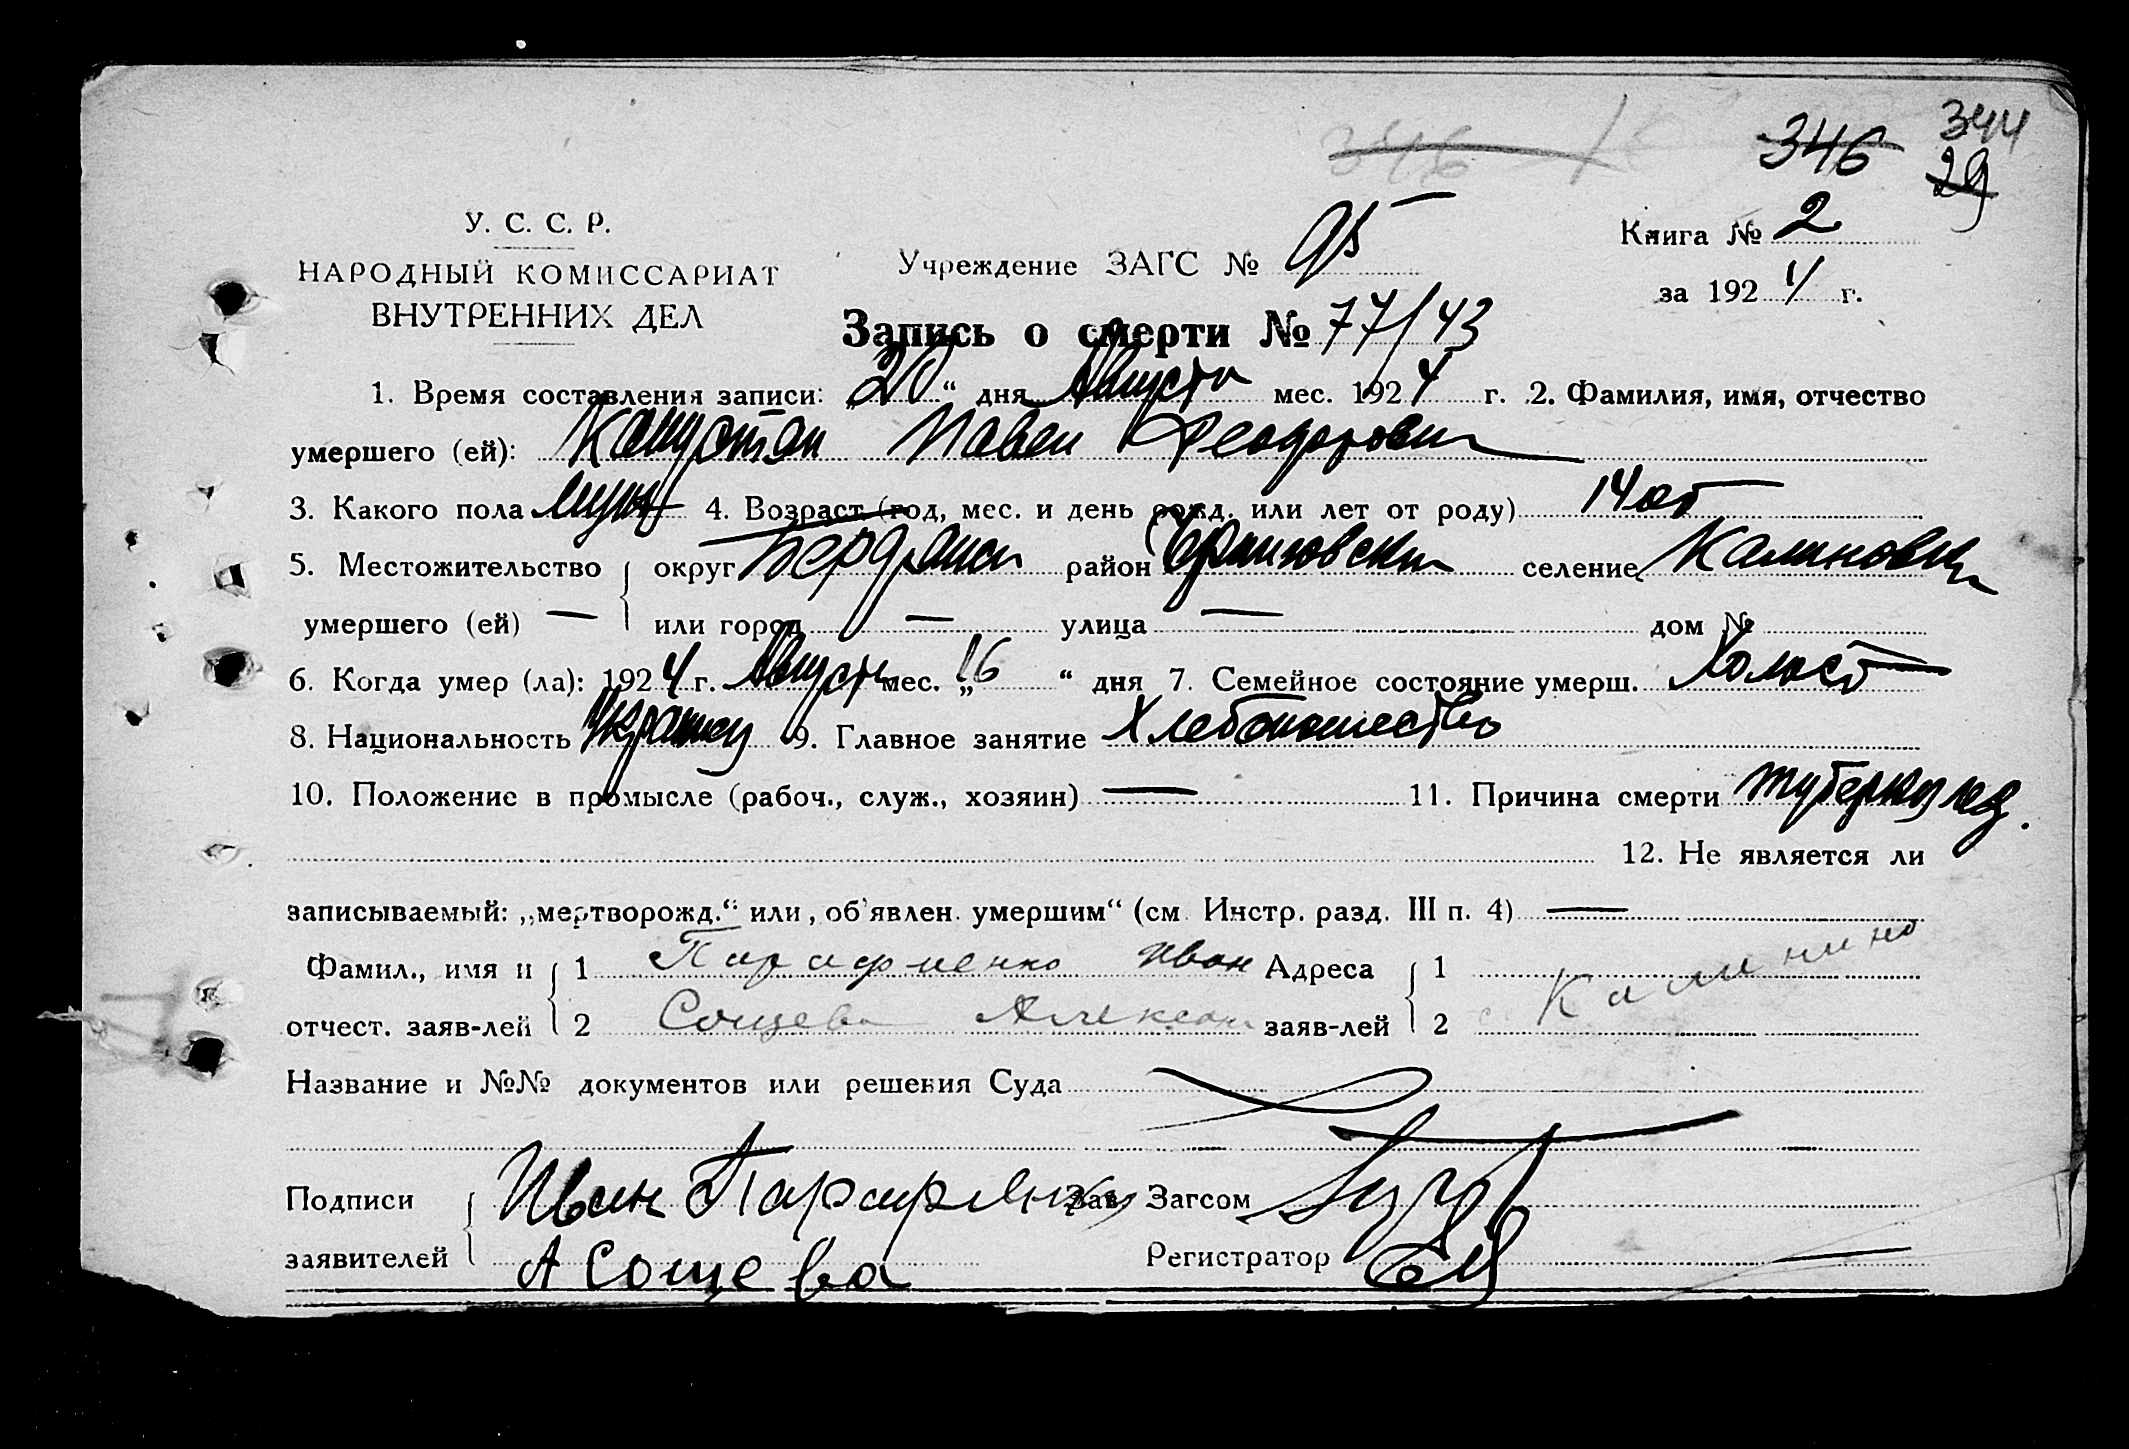 344
346 346
29
У. С. С. Р.
НАРОДНЫЙ КОМИССАРИАТ
ВНУТРЕННИХ ДЕЛ
Учреждение ЗАГС № 95
Книга № 2
за 1924 г.
Запись о смерти № 77/43
1. Время составления записи: „20“ дня Августа мес. 1924 г. 2. Фамилия, имя, отчество
умершего (ей): Капустян Павел Феодорович
3. Какого пола муж 4. Возраст (год, мес. и день рожд. или лет от роду) 14
5. Местожительство округ Бердянск район селение Калиновка
умершего (ей) — или город — улица — дом №
6. Когда умер (ла): 1924 г. Августа мес. „16“ дня 7. Семейное состояние умерш. Холост
8. Национальность 9. Главное занятие Хлебопашество
10. Положение в промысле (рабоч., служ., хозяин) — 11. Причина смерти туберкулез.
12. Не является ли
записываемый: „мертворожд.“ или „об'явлен умершим“ (см. Инстр. разд. III п. 4) —
Фамил., имя и 1 Парафиенко Иван Адреса 1
отчест. заяв-лей 2 Сощева заяв-лей 2
Название и №№ документов или решения Суда
Подписи Иван Зав. Загсом
заявителей А Сощева Регистратор